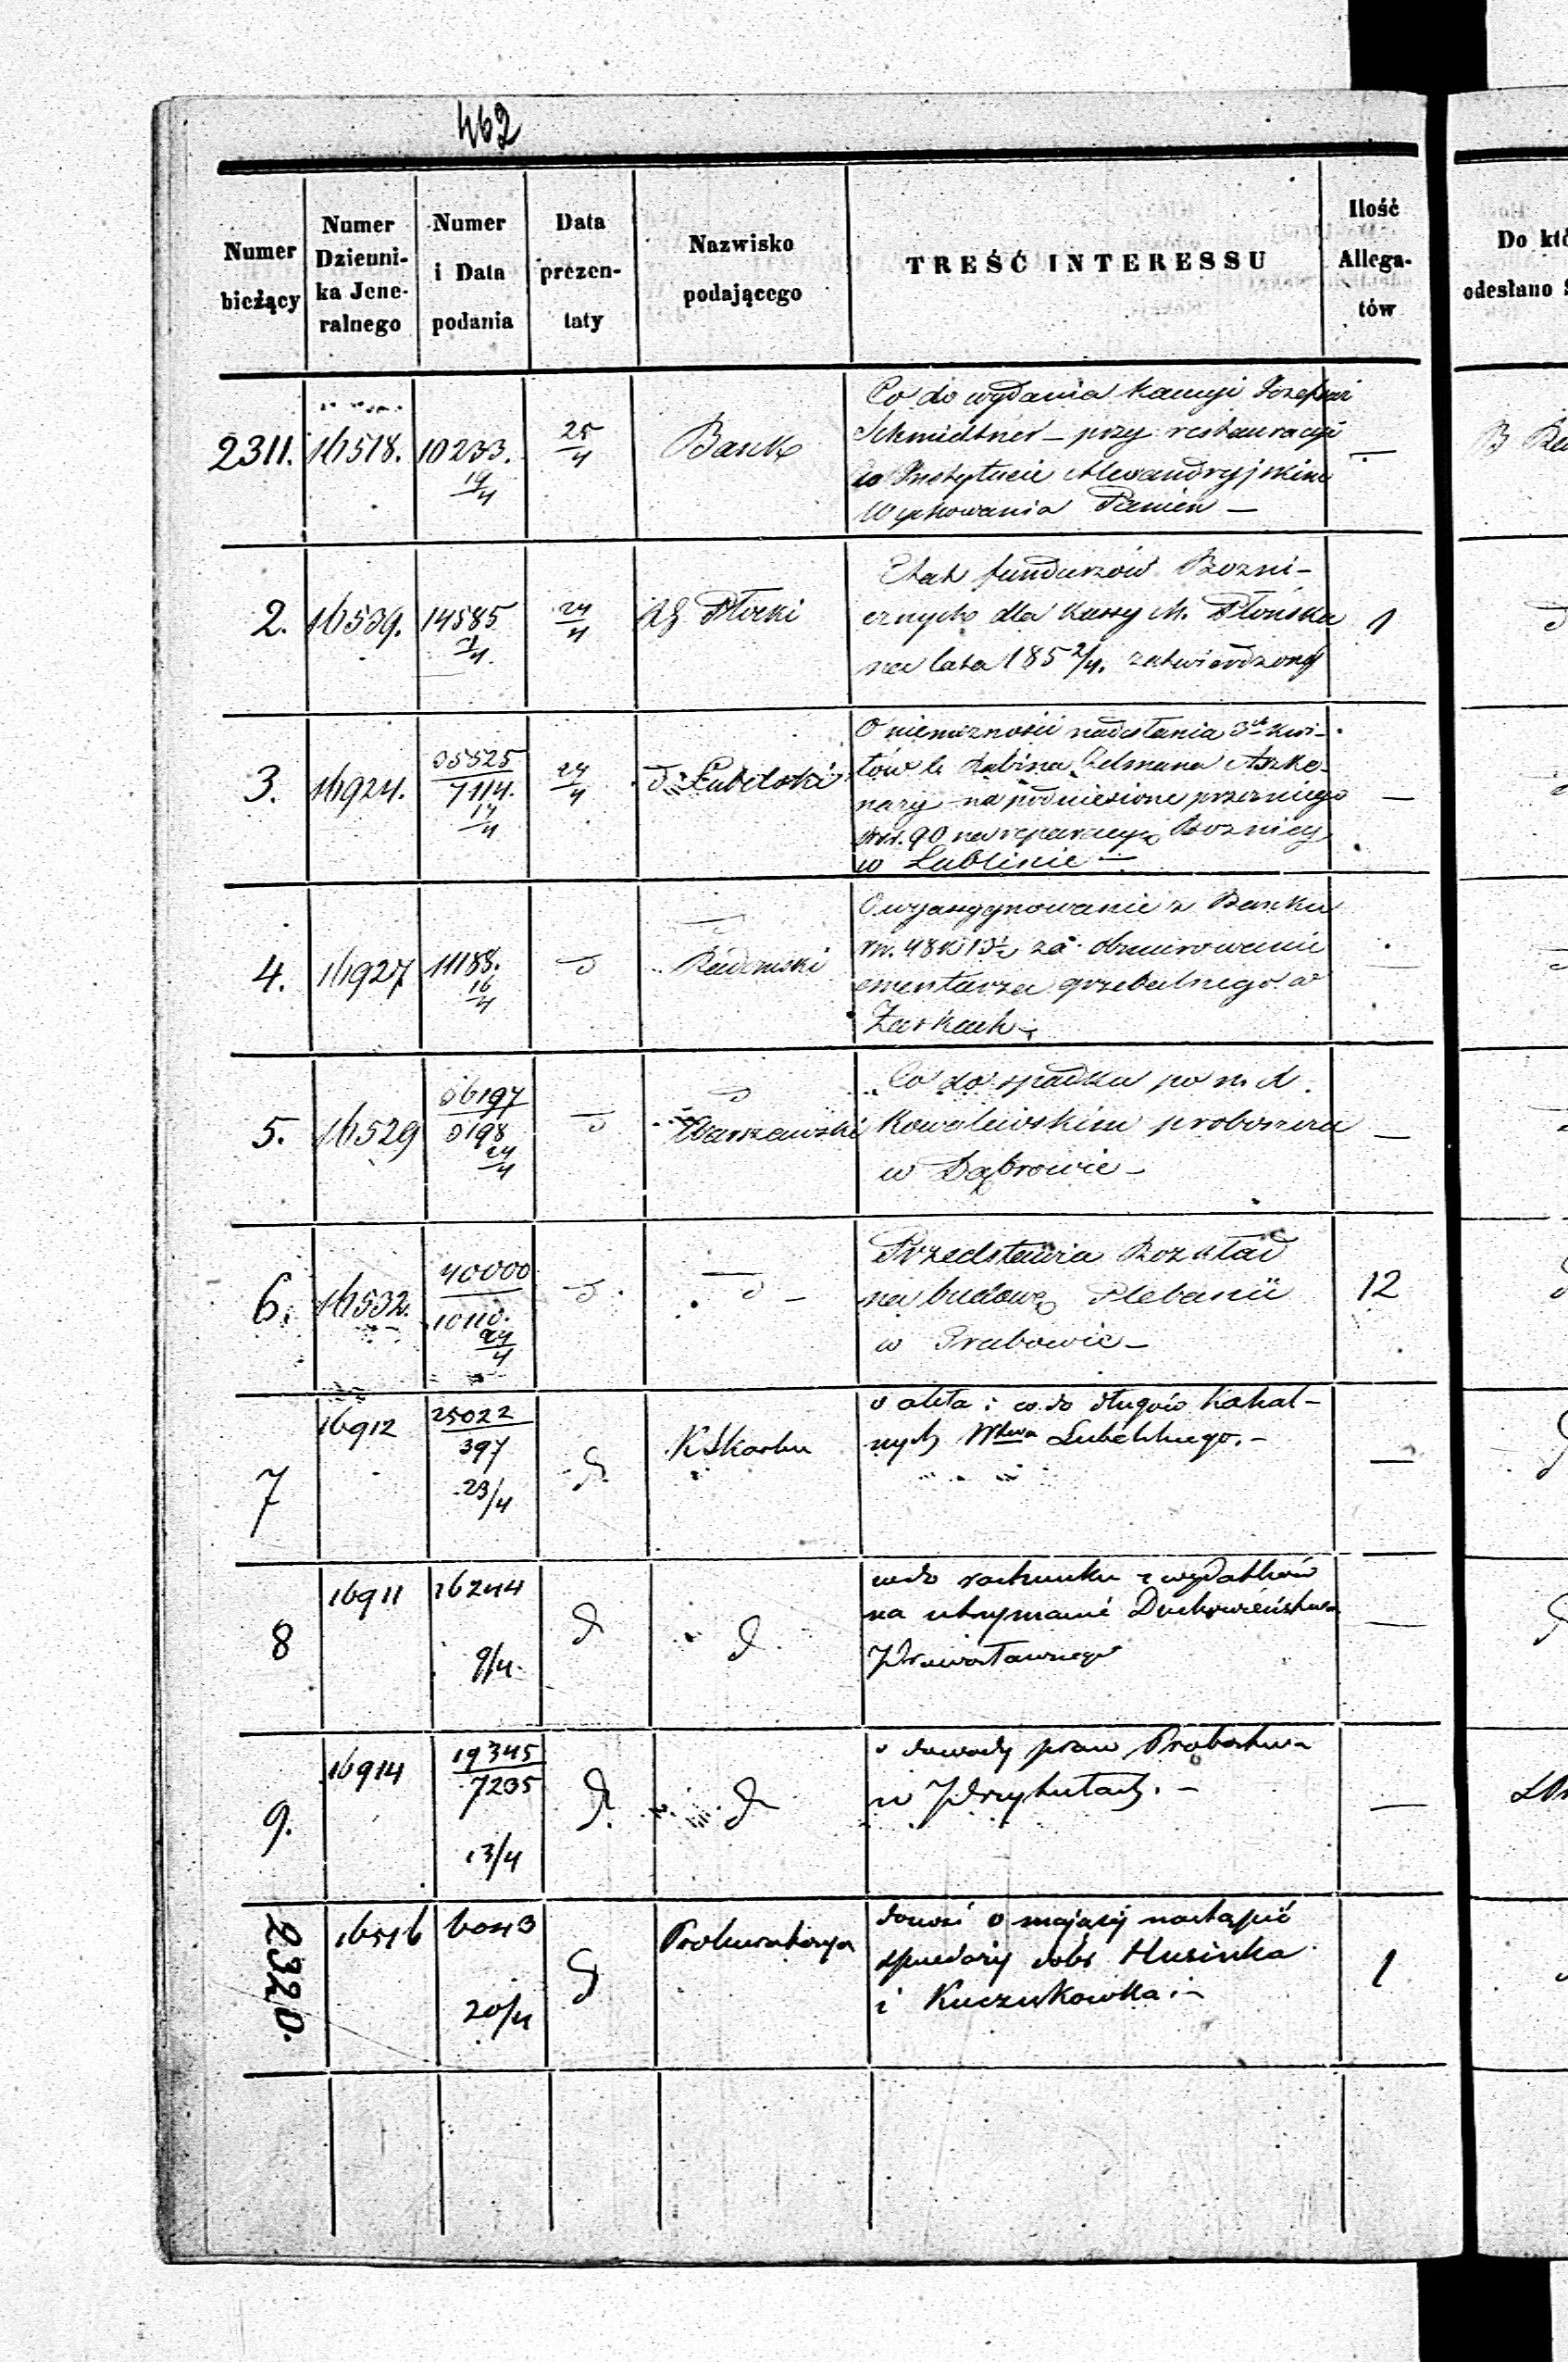 462
Numer bieżący
Numer Dzienni-ka Jene-ralnego
Numer i Data podania
Data prezen-taty
Nazwisko podającego
TREŚĆ INTERESSU
Ilość Allega-tów
Do któ
odesłano
2311. 16518. 10233. 19/4 25/4 Bank
Co do wydania kaucyi
Schmidtner — przy restauracyi
w Instytucie Alexandryjskim
Wychowania Panien —
—
2. 16539. 14585 24/4 Płocki
Etat funduszów Bozni-
cznych dla Kassy M. Płońska
na lata 185 2/4. zatwierdzony
1
3. 16924. 35525 7114. 17/4 24/4 Lubelski
O niemożności nadesłania 3ch kwi-
tów b. Rabina Aszke-
nazy na podniesione przez niego
90 na reparacyą Boznicy
w Lublinie —
—
4. 16927 11188. 16/4 Radomski
O wyassygnowanie z Banku
rs. 48 k 13½ za obmurowanie
cmentarza grzebalnego w
Żarkach —
5. 16529 36197 5198 24/4 Warszawski
Co do spadku po
Kowalewskim proboszczu
w Dąbrowie —
—
6. 16532. 40000 24/4
Przedstawia Rozkład
na budowę Plebanii
w Grabowie —
12
7 16912 25022 397 23/4 K Skarbu
o akta i co do długów kahal-
nych Wztwa Lubelskiego. —
—
8 16911 16244 9/4.
co do rachunku z wydatków
na utrzymanie Duchowieństwa
Prawosławnego
—
9. 16914 19345 7235 13/4
o dowody praw Probostwa
w
—
2320. 16516 6043 20/4 Prokuratorya
donosi o mającej nastąpić
sprzedaży dóbr Husinka
i Kuczukowka. —
1